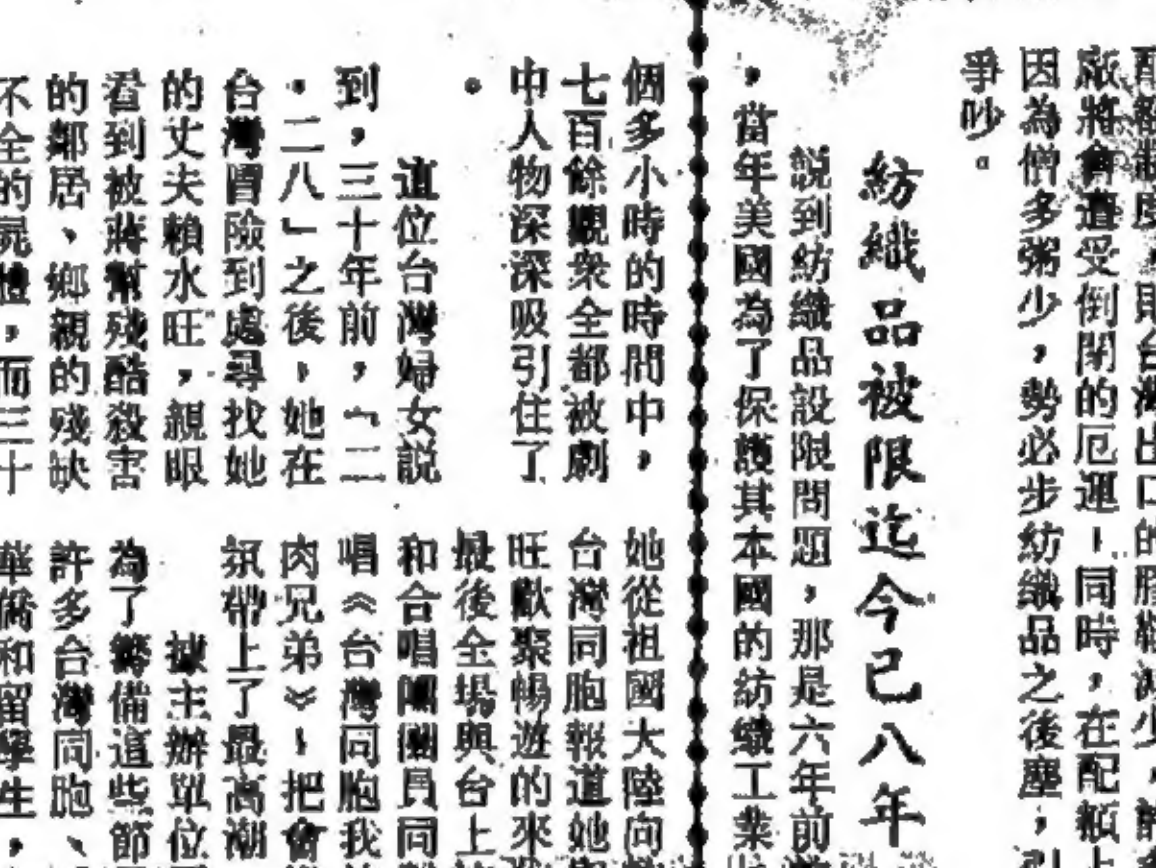 爭吵。
因為僧多粥少，勢必步紡織品之後塵，引
廠將會遭受倒閉的厄運！同時，在配額上
紡織品被限迄今已八年
説到紡織品設限問題，那是六年前
，當年美國為了保護其本國的紡織工業
個多小時的時間中，
七百餘觀衆全都被劇
中人物深深吸引住了
。
這位台灣婦女説
到，三十年前，「二
·二八」之後，她在
台灣冒險到處尋找她
的丈夫賴水旺，親眼
看到被蔣幫殘酷殺害
的鄰居、鄉親的殘缺
不全的屍體，而三十
她從祖國大陸向
台灣同胞報道她
旺歡聚暢遊的來
最後全場與台上
和合唱團團員同
唱《台灣同胞我
肉兄弟》！把會
氛帶上了最高潮
據主辦單位
為了籌備這些節
許多台灣同胞、
華僑和留學生，